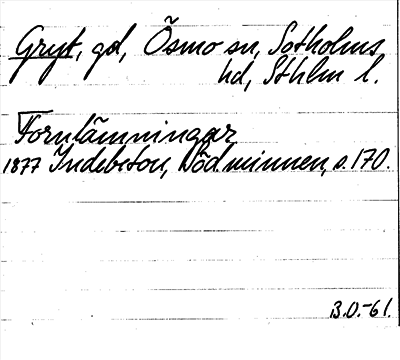 Gryt, gd, Ösmo sn, Sotholms
hd, Sthlm l.
Fornlämningar
1877 Indebetou, Södminnen, s. 170.
B.O.-61.